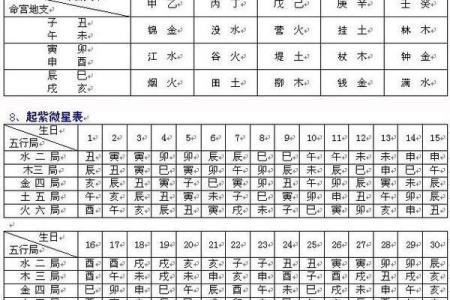 甲乙 丙丁 戊己 庚辛 壬癸
命宫地支
子 丑
午 未 锦金 没水 营火 挂土 林木
寅 卯
申 酉 江水 谷火 堤土 杖木 钟金
辰 巳
戌 亥 烟火 田土 柳木 钱金 满水
8、起紫微星表
生日
五行局 1 2 3 4 5 6 7 8 9 10 11 12 13 14 15
水二局 丑 寅 寅 卯 卯 辰 辰 巳 巳 午 午 未 未 申 申
木三局 辰 丑 寅 巳 寅 卯 午 卯 辰 未 辰 巳 申 巳 午
金四局 亥 辰 丑 寅 子 巳 寅 卯 丑 午 卯 辰 寅 未 辰
土五局 午 亥 辰 丑 寅 未 子 巳 寅 卯 申 丑 午 卯 辰
火六局 酉 午 亥 辰 丑 寅 戌 未 子 巳 寅 卯 亥 申 丑
生日
五行局 16 17 18 19 20 21 22 23 24 25 26 27 28 29 30
水二局 酉 酉 戌 戌 亥 亥 子 子 丑 丑 寅 寅 卯 卯 辰
木三局 酉 午 未 戌 未 申 亥 申 酉 子 酉 戌 丑 戌 亥
金四局 巳 卯 申 巳 午 辰 酉 午 未 巳 戌 未 申 午 亥